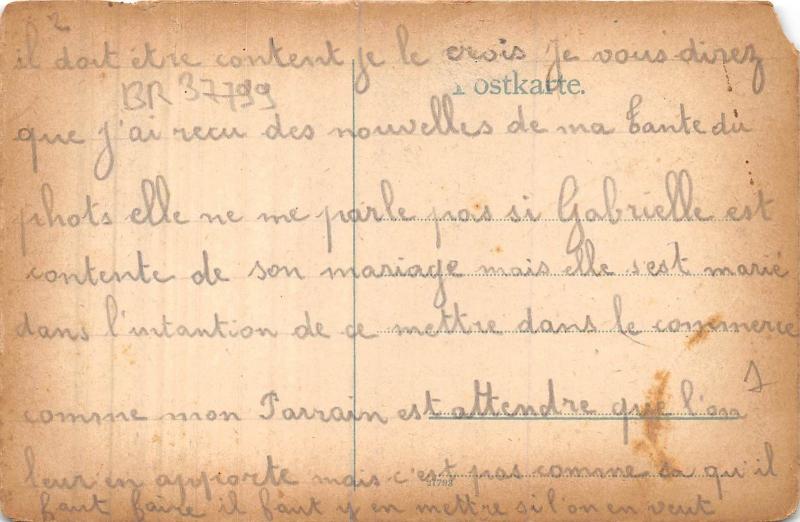 2
il doit être content je le crois je vous direz
BR 37799
Postkarte.
que j'ai recu des nouvelles de ma tante du
phots elle ne me parle pas si Gabrielle est
contente de son mariage mais elle s'est marié
dans l'intantion de ce mettre dans le commerce
1
comme mon Parrain est attendre que l'on
leur en apporte mais c'est pas comme sa qu'il
faut faire il faut y en mettre si l'on en veut